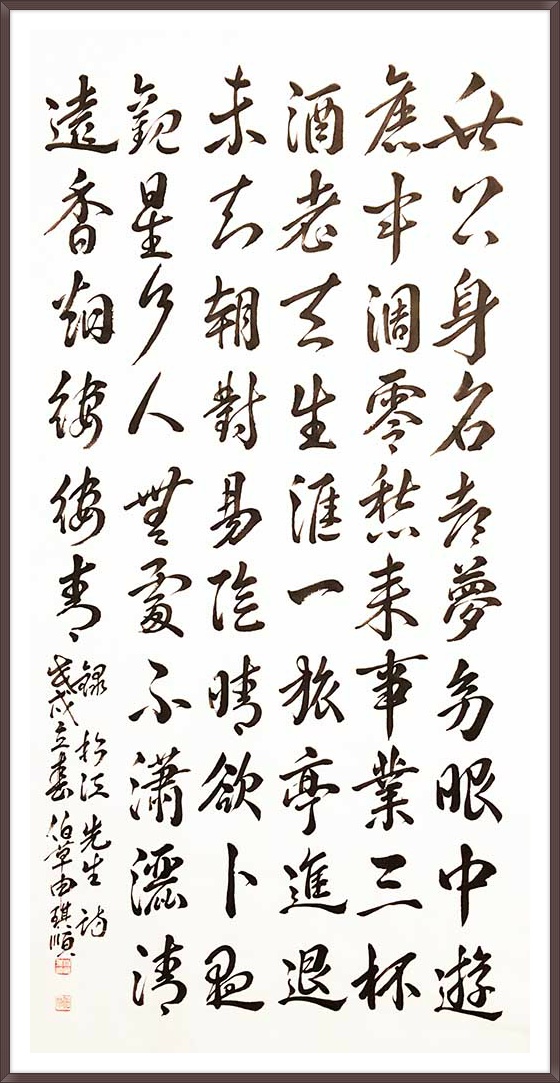 公身名都夢幻眼中遊
舊半凋零愁来事業三杯
酒老去生涯一旅亭進退
未知朝對易陰晴欲卜夜
觀星个人無處不瀟灑清
遠香烟縷縷青
錄 江先生詩
戊戌立春 伯章由琪順